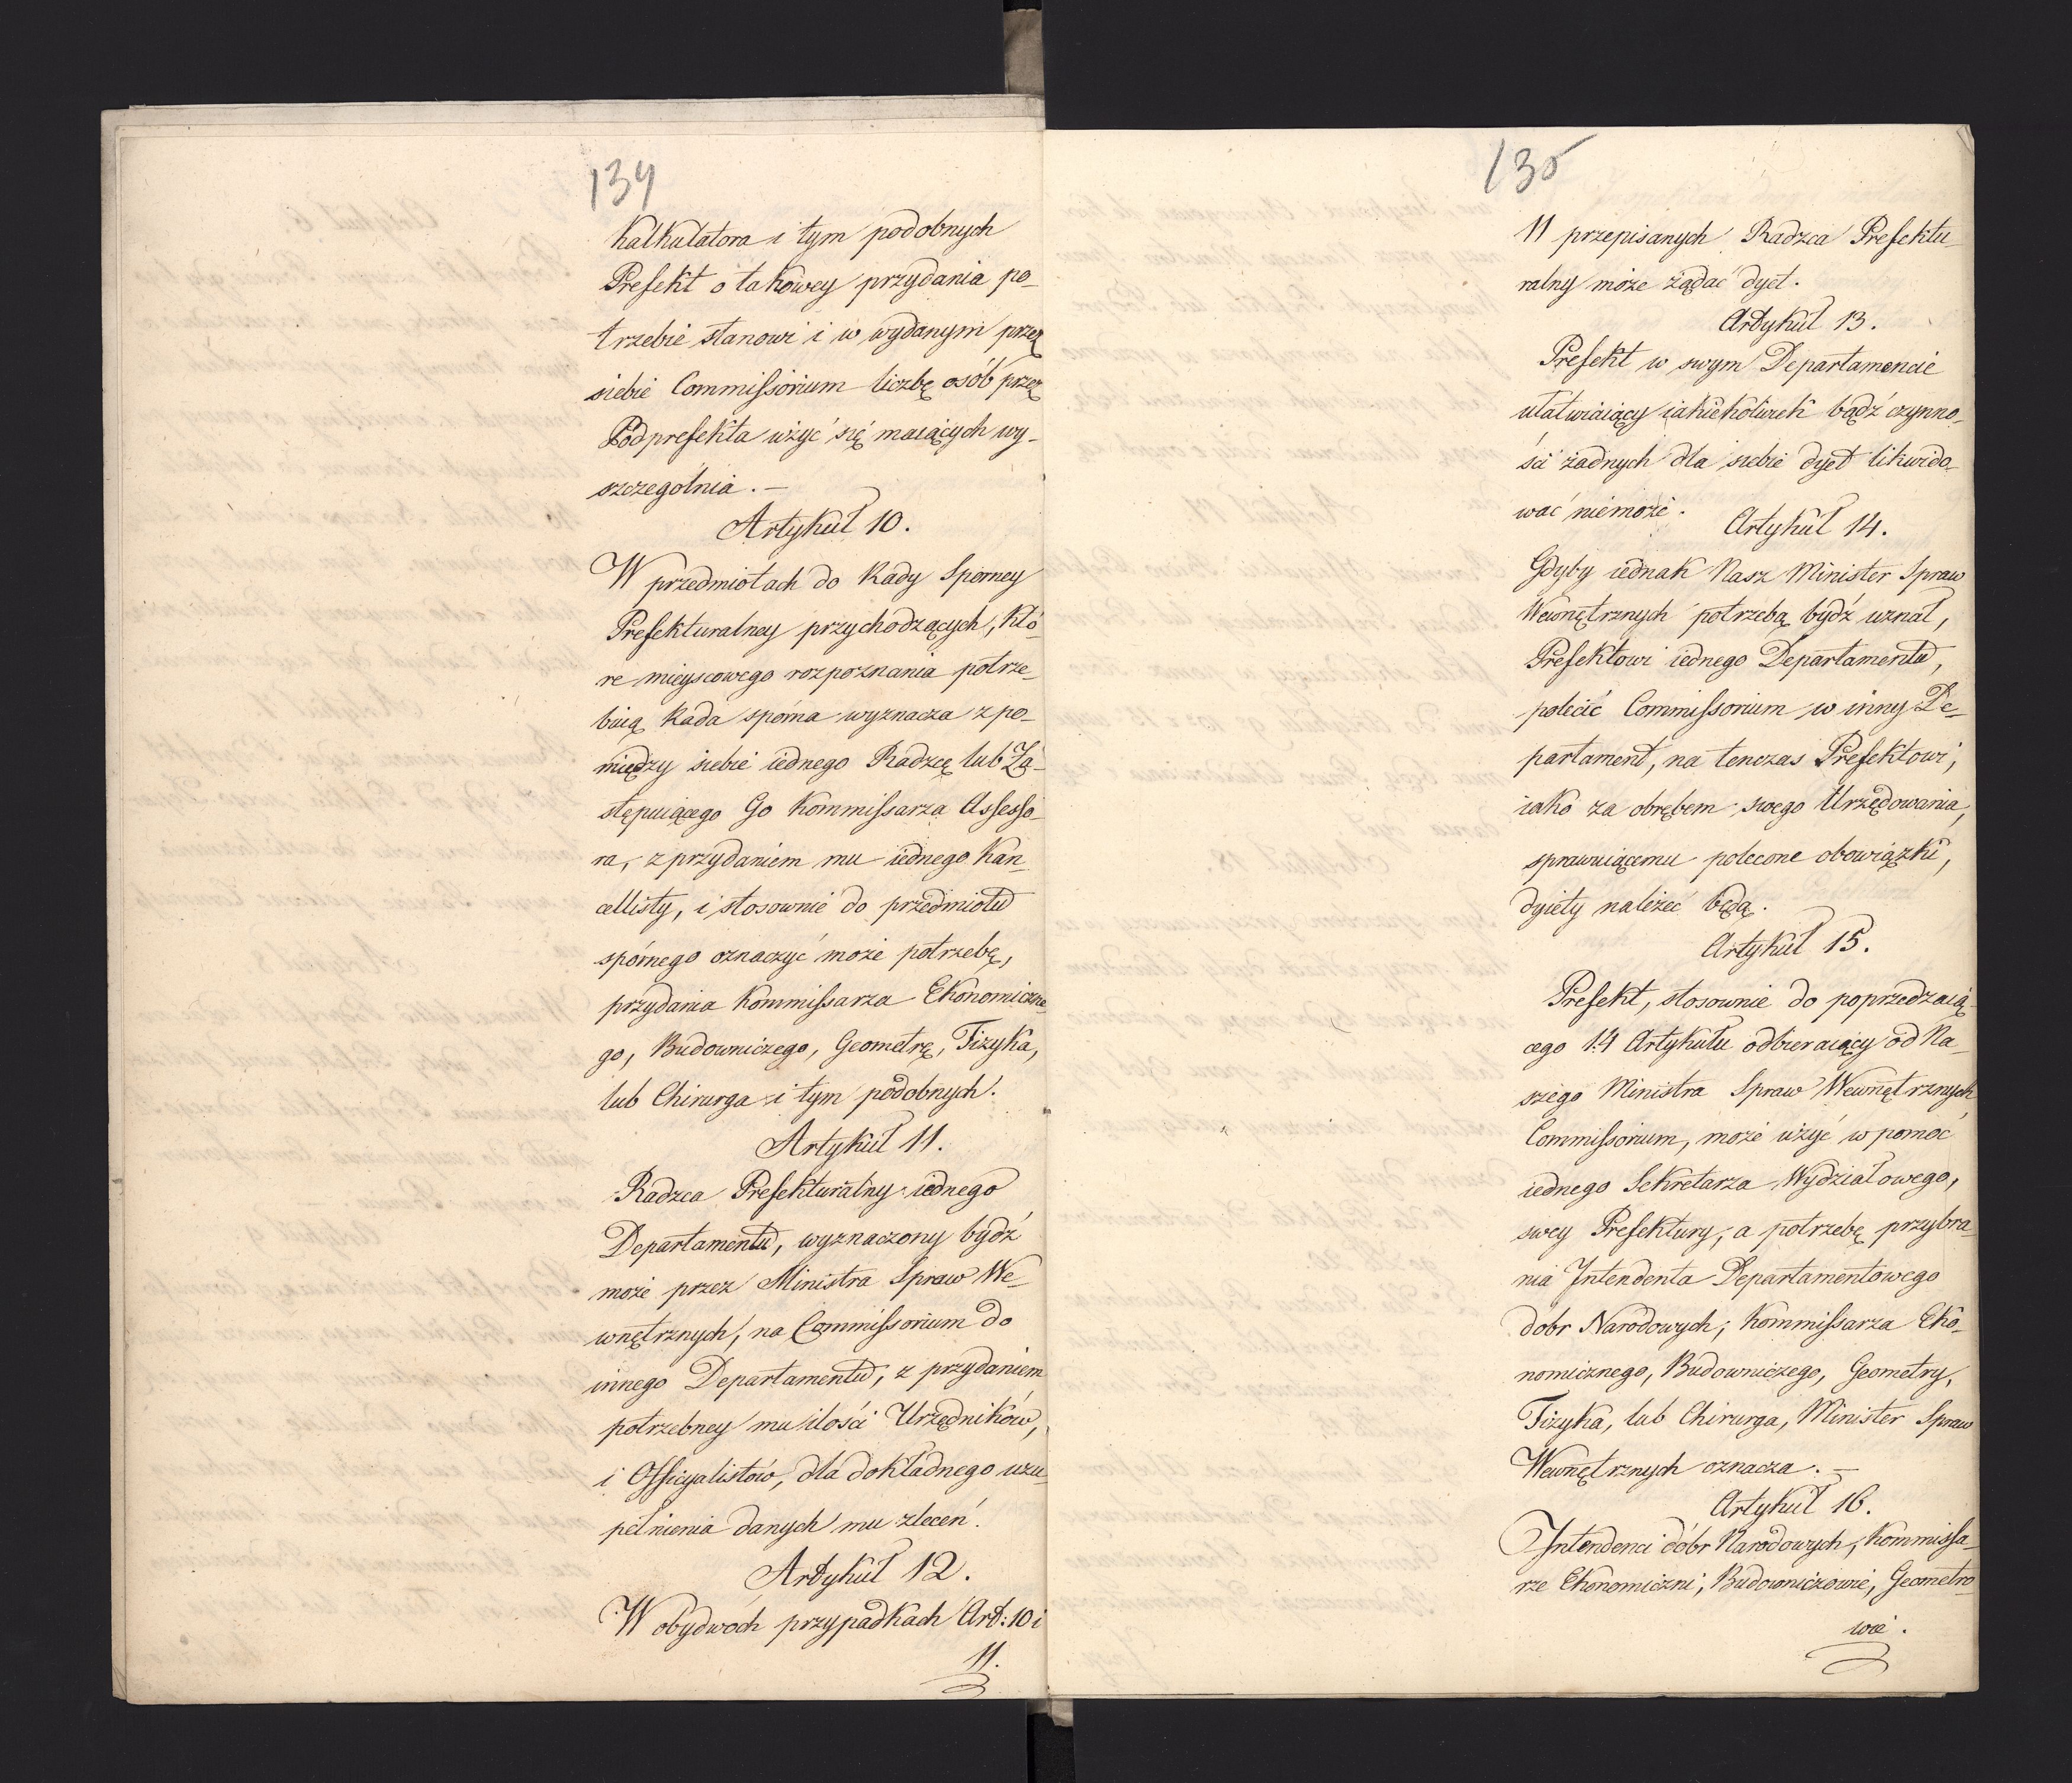 134
Kalkulatora i tym podobnych
Prefekt o takowey przydania po-
trzebie stanowi i w wydanym przez
siebie Commissorium liczbę osób przez
Podprefekta użyć się maiących wy-
szczegolnia. —
Artykuł 10.
W przedmiotach do Rady Sporney
Prefekturalney przychodzących, któ-
re mieyscowego rozpoznania potrze-
buią Rada sporna wyznacza z po-
między siebie iednego Radzcę lub Za-
stępuiącego Go Kommissarza Assesso-
ra, z przydaniem mu iednego Kan-
cellisty, i stosownie do przedmiotu
spórnego oznaczyć może potrzebę,
przydania Kommissarza Ekonomiczne-
go, Budowniczego, Geometrę, Fizyka,
lub Chirurga i tym podobnych.
Artykuł 11.
Radzca Prefekturalny iednego
Departamentu, wyznaczony bydź
może przez Ministra Spraw We-
wnętrznych, na Commissorium do
innego Departamentu, z przydaniem
potrzebney mu ilości Urzędników,
i Officyalistów, dla dokładnego uzu-
pełnienia danych mu zleceń.
Artykuł 12.
W obydwóch przypadkach Art: 10 i
11.
135
11 przepisanych Radzca Prefektu-
ralny może żądać dyet.
Artykuł 13.
Prefekt w swym Departamencie
ułatwiaiący iakiekolwiek bądź czynno-
ści żadnych dla siebie dyet likwido-
wać niemoże.
Artykuł 14.
Gdyby iednak Nasz Minister Spraw
Wewnętrznych potrzebą bydź uznał,
Prefektowi iednego Departamentu,
polecić Commissorium w inny De-
partament, na tenczas Prefektowi,
iako za obrębem swego Urzędowania,
sprawuiącemu polecone obowiązki,
dyiety należeć będą.
Artykuł 15.
Prefekt, stosownie do poprzedzaią-
cego 14 Artykułu odbieraiący od Na-
szego Ministra Spraw Wewnętrznych
Commissorium, może użyć w pomoc
iednego Sekretarza Wydziałowego,
swey Prefektury, a potrzebę przybra-
nia Intendenta Departamentowego
dobr Narodowych, Kommissarza Eko-
nomicznego, Budowniczego, Geometry,
Fizyka, lub Chirurga, Minister Spraw
Wewnętrznych oznacza. —
Artykuł 16.
Intendenci dóbr Narodowych, Kommissa-
rze Ekonomiczni, Budowniczowie, Geometro-
wie.